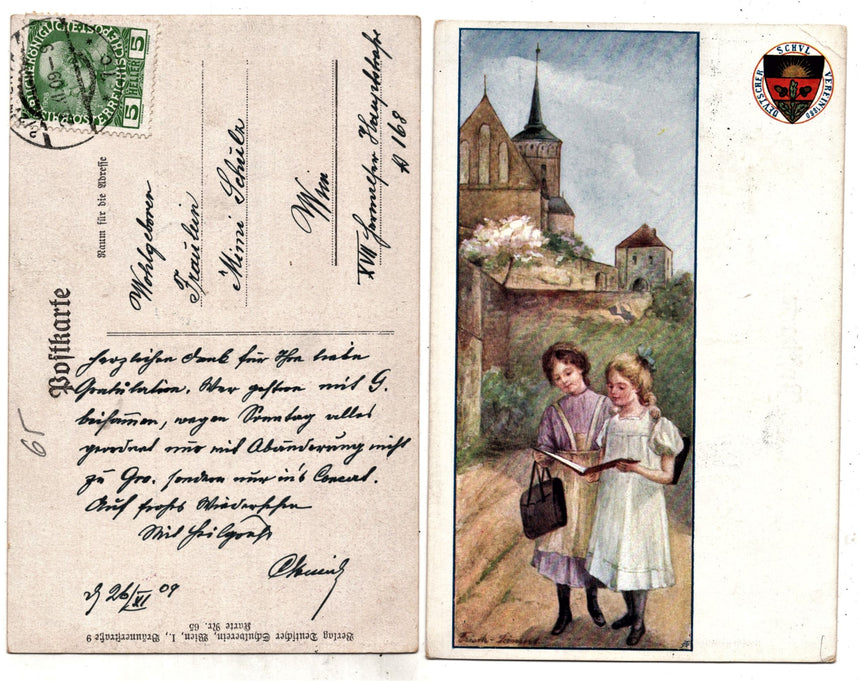 ÖSTERREICHISCHE POST
5 HELLER 5
Postkarte
Raum für die Adresse
Wohlgeboren
Fräulein
Mimi Schulz
Wien
XVII Hernalser Hauptstraße
№ 168
Herzlichen Dank für Ihre liebe
Gratulation. War gestern mit G.
beisammen, wegen Sonntag alles
geordnet nur mit Abänderung nicht
zu Gro. sondern nur in's Concert.
Auf frohes Wiedersehen
Mit Heilgruß
d 26/XI 09
65
Verlag Deutscher Schulverein, Wien, I., Bräunerstraße 9
Karte Nr. 65
DEVTSCHER SCHVL VEREIN 1880